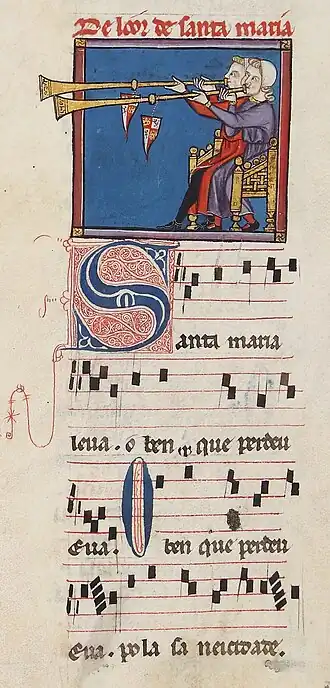 De loor de santa maria
Santa maria
leua. o ben que perdeu
Eua. O ben que perdeu
Eua. pola sa neicidade.